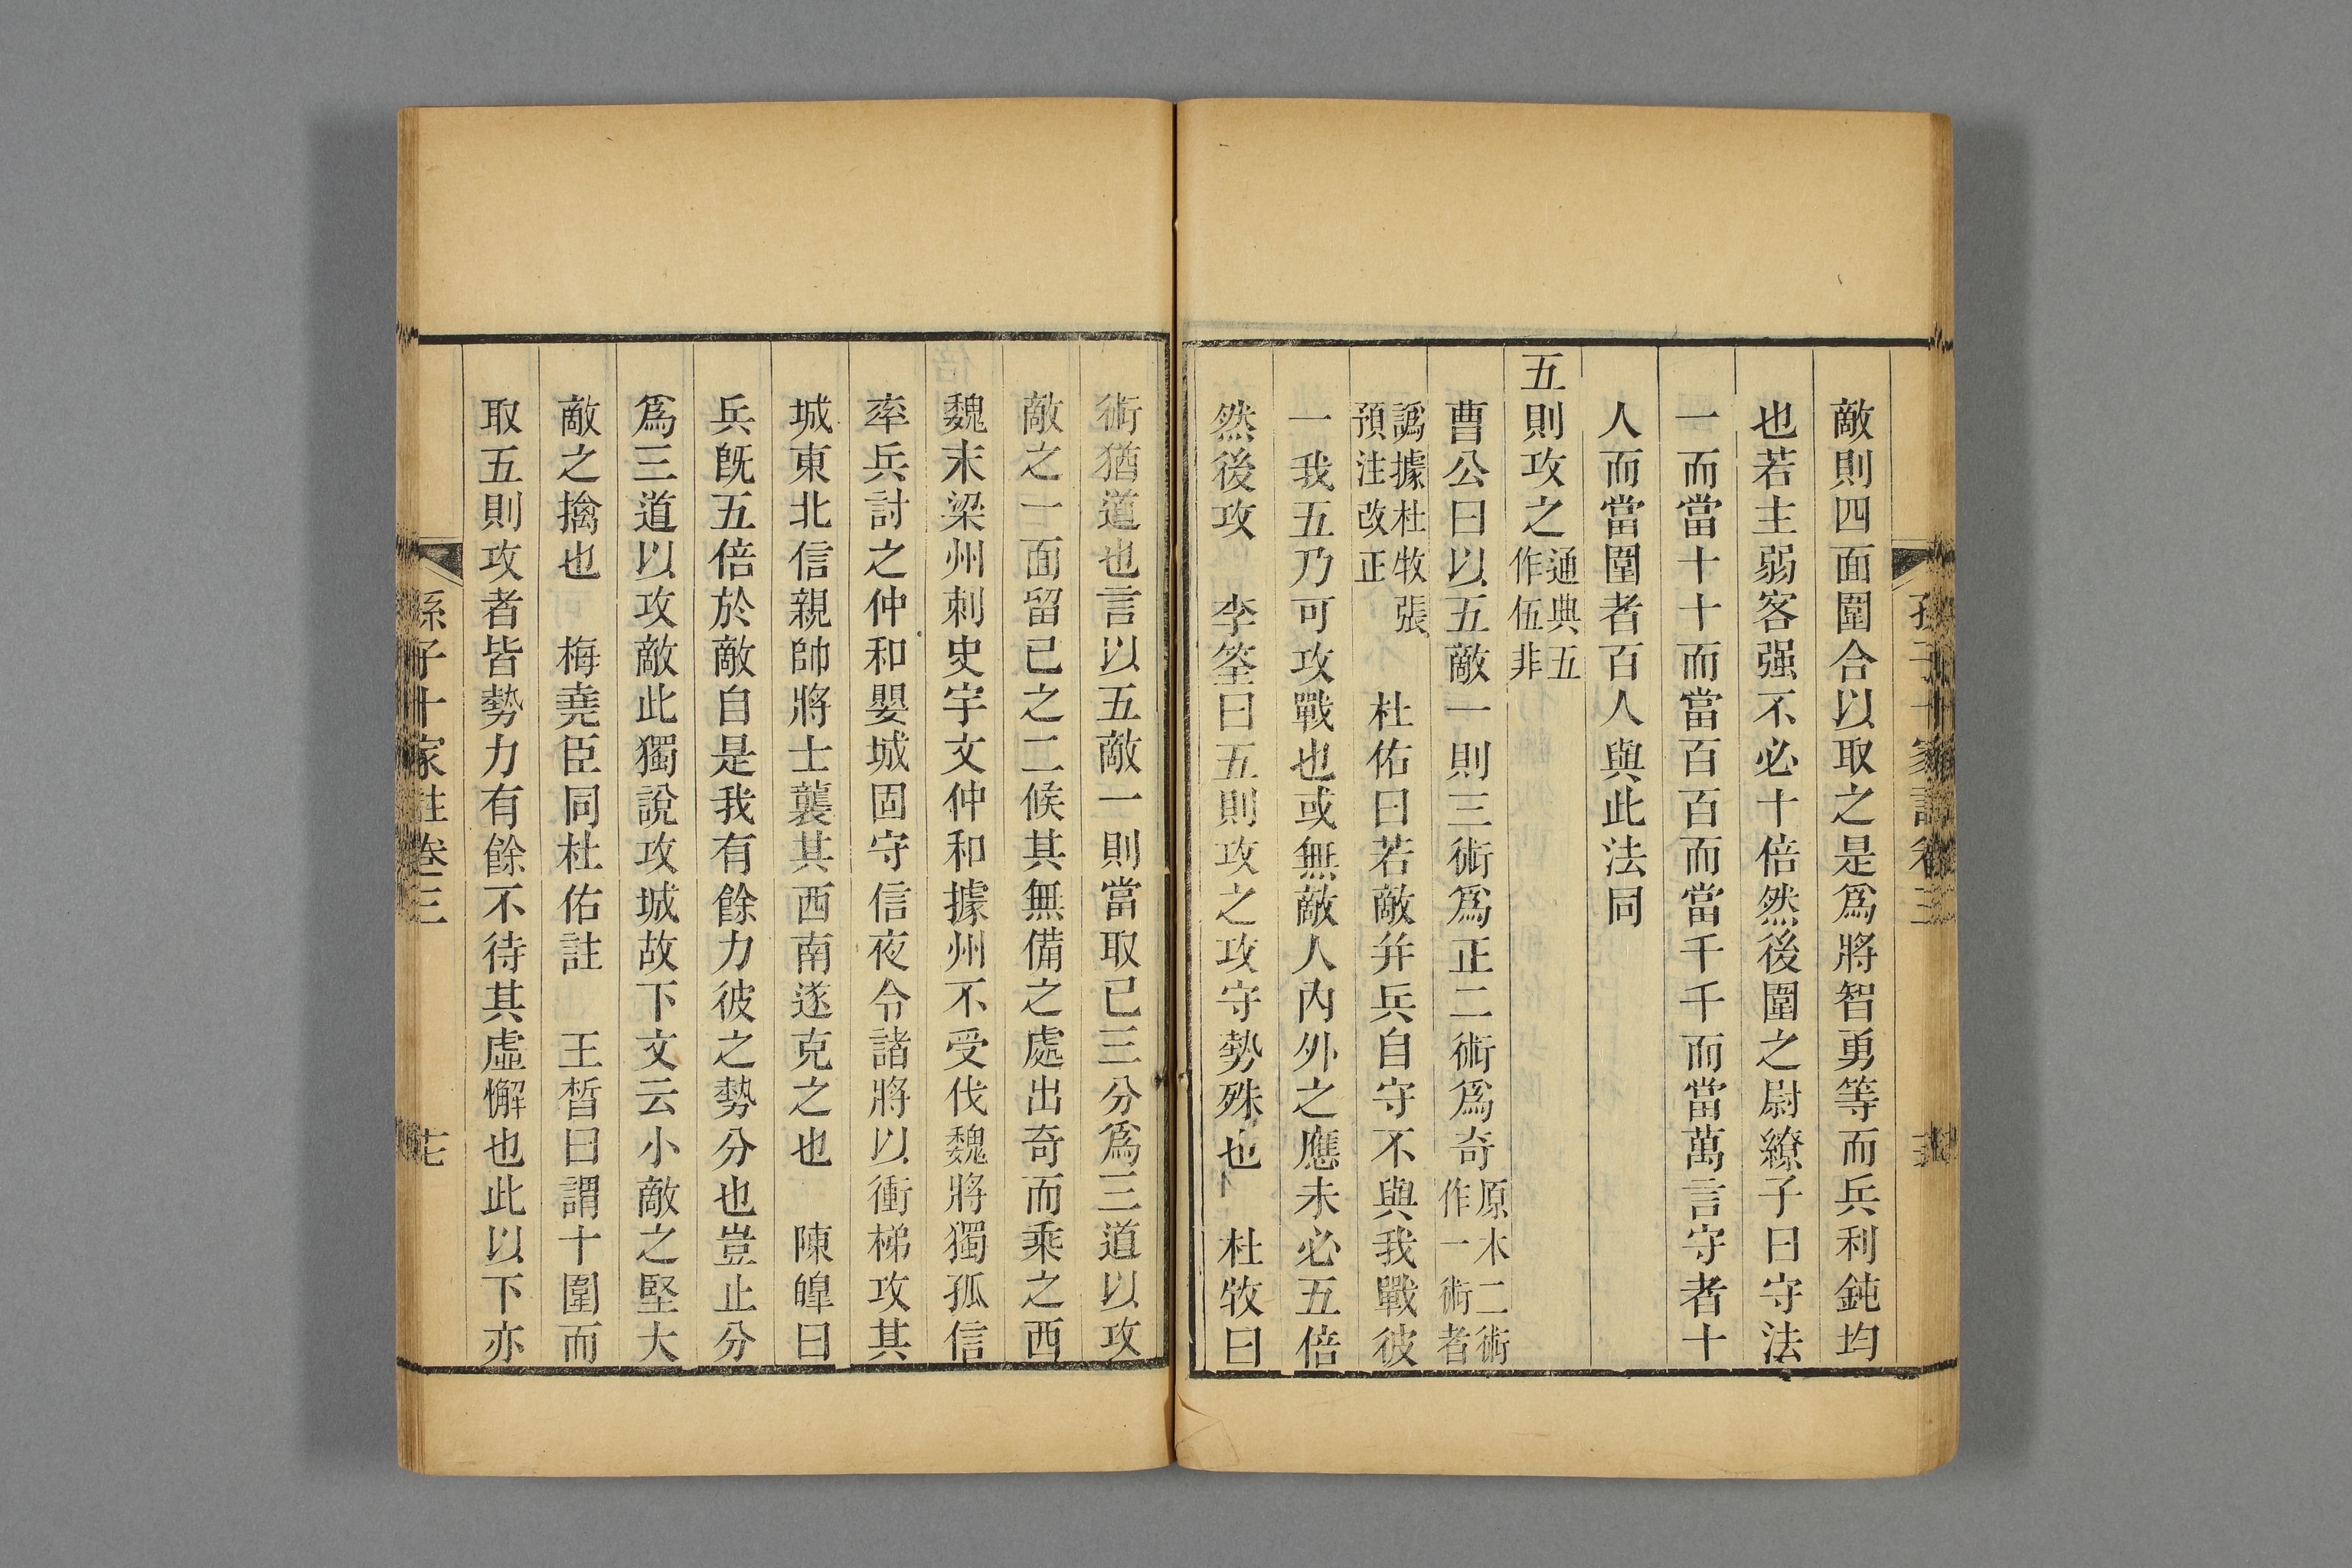 敵則四面圍合以取之是爲將智勇等而兵利鈍均
也若主弱客强不必十倍然後圍之尉繚子曰守法
一而當十十而當百百而當千千而當萬言守者十
人而當圍者百人與此法同
五則攻之通典五作伍非
曹公曰以五敵一則三術爲正二術爲奇原本二術作一術者
譌據杜牧張預注改正 杜佑曰若敵并兵自守不與我戰彼
一我五乃可攻戰也或無敵人內外之應未必五倍
然後攻 李筌曰五則攻之攻守勢殊也 杜牧曰
術猶道也言以五敵一則當取已三分爲三道以攻
敵之一面留已之二候其無備之處出奇而乘之西
魏末梁州刺史宇文仲和據州不受伐魏將獨孤信
率兵討之仲和嬰城固守信夜令諸將以衝梯攻其
城東北信親帥將士襲其西南遂克之也 陳皥曰
兵旣五倍於敵自是我有餘力彼之勢分也豈止分
爲三道以攻敵此獨說攻城故下文云小敵之堅大
敵之擒也 梅堯臣同杜佑註 王晳曰謂十圍而
取五則攻者皆勢力有餘不待其虛懈也此以下亦
孫子十家註卷三